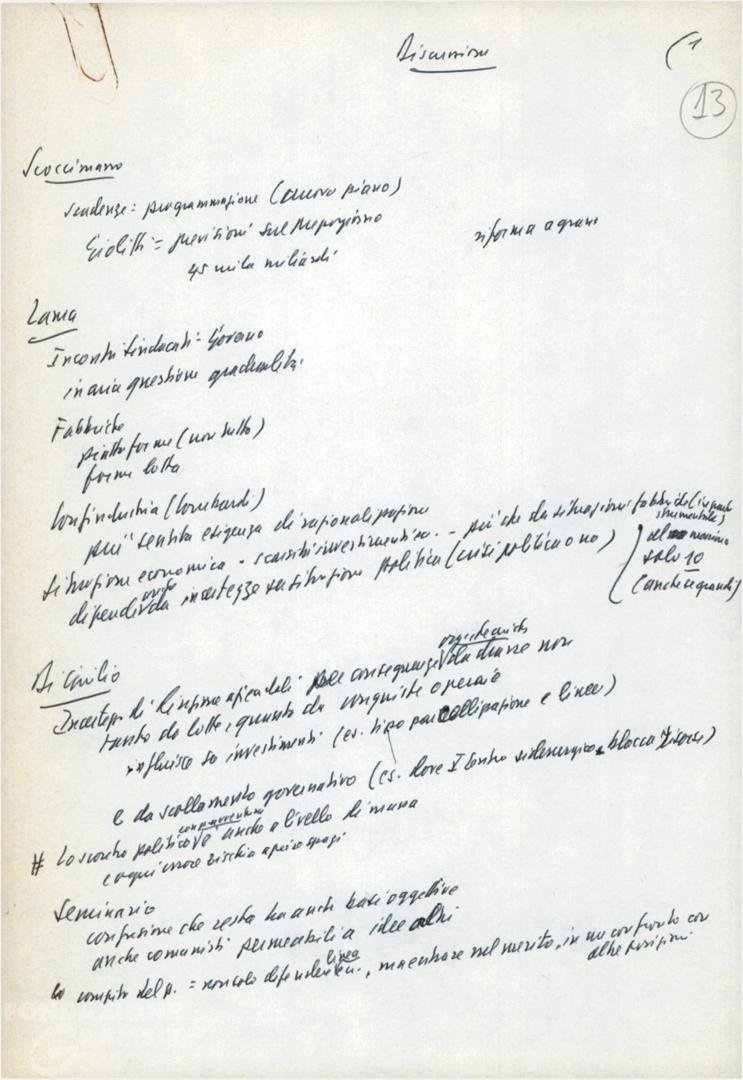 Discussione
(1
13
Scoccimarro
scadenze: programmazione (nuovo piano)
Giolitti = previsioni sul Mezzogiorno
45 mila miliardi
riforma agraria
Lama
Incontri sindacati = Governo
in aria questione gradualità.
Fabbriche
piattaforme (non tutto)
forme lotta
Confindustria (Lombardi)
più sentita esigenza di razionalizzazione
Situazione economica - scarsi investimenti - più che da situazioni fabbriche
strumentale)
dipendi da incertezze su situazione politica (crisi politica o no)
al massimo
solo 10
(anche se grandi)
Di Giulio
Incertezza di direzione aziendali conseguenze da trarre non
tanto da lotte, quanto da conquiste operaie
influisce su investimenti (es. tipo e linee)
e da scollamento governativo (es. dove V Centro siderurgico, blocca
# Lo scontro politico v'è anche a livello di massa
e ogni errore rischia aprire spazi
Seminario
confusione che resta ha anche basi oggettive
anche comunisti permeabili a idee altrui
compito del p. = non solo difendere linea, ma entrare nel merito, in un confronto con
altre posizioni
FONDAZIONE
GRAMSCI